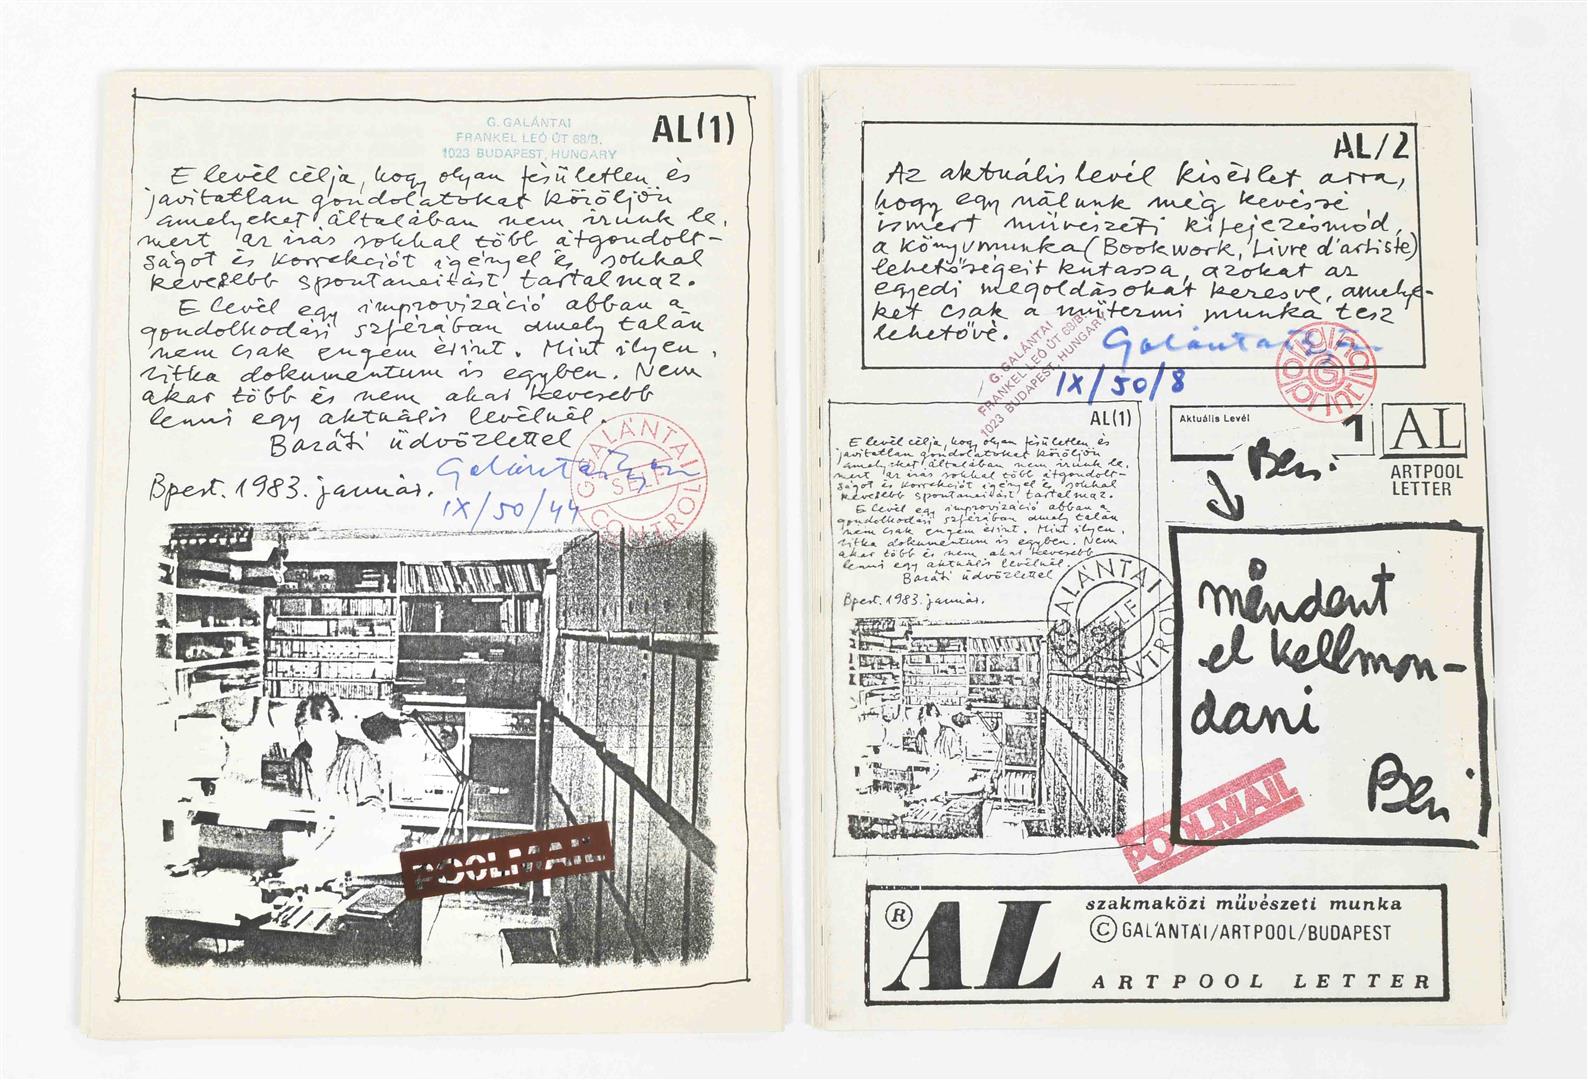 G. GALÁNTAI
FRANKEL LEÓ ÚT 68/B.
1023 BUDAPEST, HUNGARY
AL(1)
E levél célja, hogy olyan fésületlen és
javitatlan gondolatokat közöljön
amelyeket általában nem irunk le,
mert az irás sokkal több átgondolt-
ságot és korrekciót igényel és sokkal
kevesebb spontaneitást tartalmaz.
E levél egy improvizáció abban a
gondolkodási szférában amely talán
nem csak engem érint. Mint ilyen,
ritka dokumentum is egyben. Nem
akar több és nem akar kevesebb
lenni egy aktuális levélnél.
Baráti üdvözlettel
Galántai
Bpest. 1983. január.
IX/50/44
GALÁNTAI
SELF
CONTROL
POOLMAIL
AL/2
Az aktuális levél kisérlet arra,
hogy egy nálunk még kevéssé
ismert müvészeti kifejezésmód,
a könyvmunka (Bookwork, Livre d'artiste)
lehetőségeit kutassa, azokat az
egyedi megoldásokat keresve, amelye-
ket csak a mütermi munka tesz
lehetővé.
Galántai
IX/50/8
G. GALÁNTAI
FRANKEL LEÓ ÚT 68/B.
1023 BUDAPEST, HUNGARY
original
G
print
AL(1)
E levél célja, hogy olyan fésületlen és
javitatlan gondolatokat közöljön
amelyeket általában nem irunk le,
mert az irás sokkal több átgondolt-
ságot és korrekciót igényel és sokkal
kevesebb spontaneitást tartalmaz.
E levél egy improvizáció abban a
gondolkodási szférában amely talán
nem csak engem érint. Mint ilyen,
ritka dokumentum is egyben. Nem
akar több és nem akar kevesebb
lenni egy aktuális levélnél.
Baráti üdvözlettel
Bpest. 1983. január.
GALÁNTAI
SELF
CONTROL
Aktuális Levél
1
Ben.
AL
ARTPOOL
LETTER
mindent
el kellmon-
dani
Ben
POOLMAIL
® AL
szakmaközi müvészeti munka
© GALÁNTAI/ARTPOOL/BUDAPEST
ARTPOOL LETTER